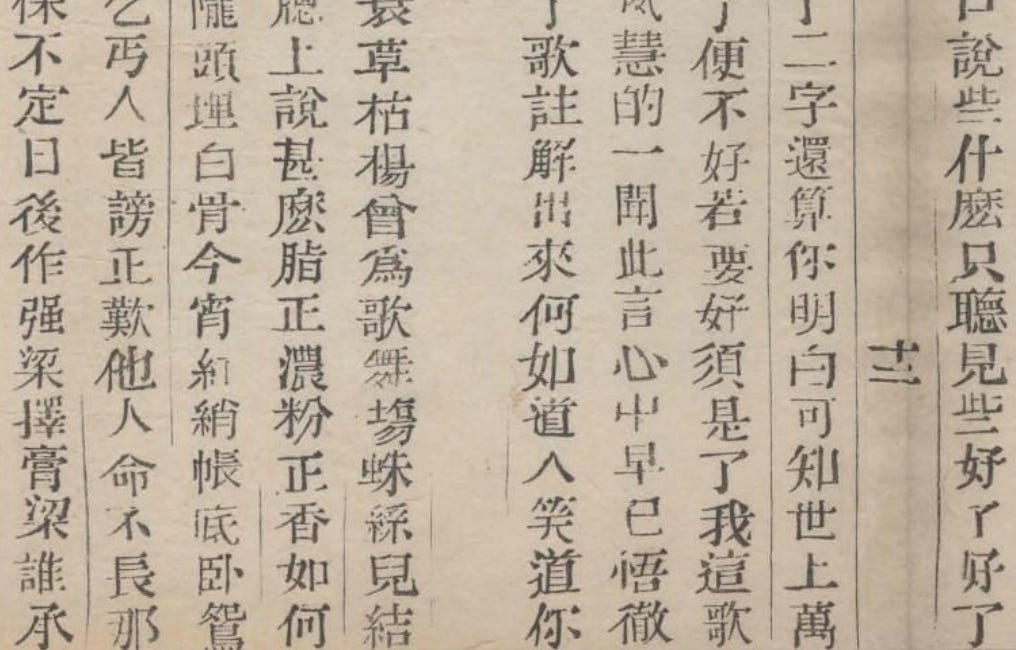 說些什麽只聽見些好了好了
十二
了二字還算你明白可知世上萬
了便不好若要好須是了我這歌
慧的一聞此言心中早已悟徹
了歌註解出來何如道人笑道你
衰草枯楊曾爲歌舞塲蛛絲兒結
上說甚麽脂正濃粉正香如何
隴頭埋白骨今宵紅綃帳底卧鴛
乞丐人皆謗正歎他人命不長那
保不定日後作强梁擇膏梁誰承